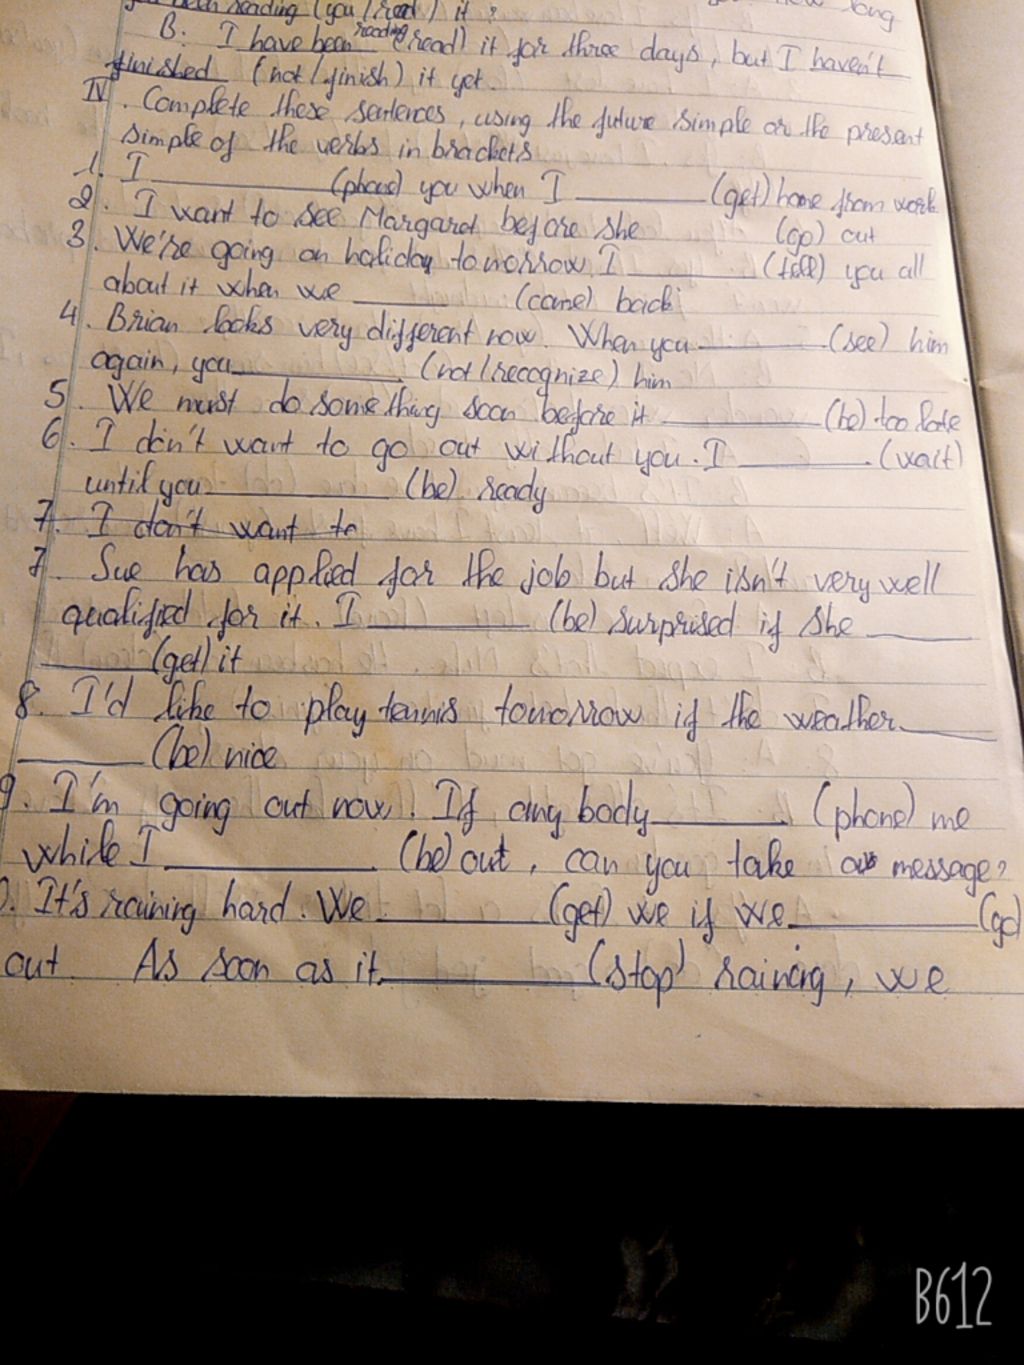 been reading (you/read) it? long
B. I have been reading (read) it for three days, but I haven't
finished (not/finish) it yet.
IV. Complete these sentences, using the future simple or the present
simple of the verbs in brackets
1. I ________ (phone) you when I ________ (get) home from work
2. I want to see Margaret before she (go) out
3. We're going on holiday tomorrow I ________ (tell) you all
about it when we ________ (come) back
4. Brian looks very different now. When you ________ (see) him
again, you ________ (not/recognize) him
5. We must do something soon before it ________ (be) too late
6. I don't want to go out without you. I ________ (wait)
until you ________ (be) ready
7. I don't want to
7. Sue has applied for the job but she isn't very well
qualified for it. I ________ (be) surprised if she ________
________ (get) it
8. I'd like to play tennis tomorrow if the weather ________
________ (be) nice
9. I'm going out now. If any body ________ (phone) me
while I ________ (be) out, can you take a message?
0. It's raining hard. We ________ (get) we if we ________ (go)
out. As soon as it ________ (stop) raining, we
B612